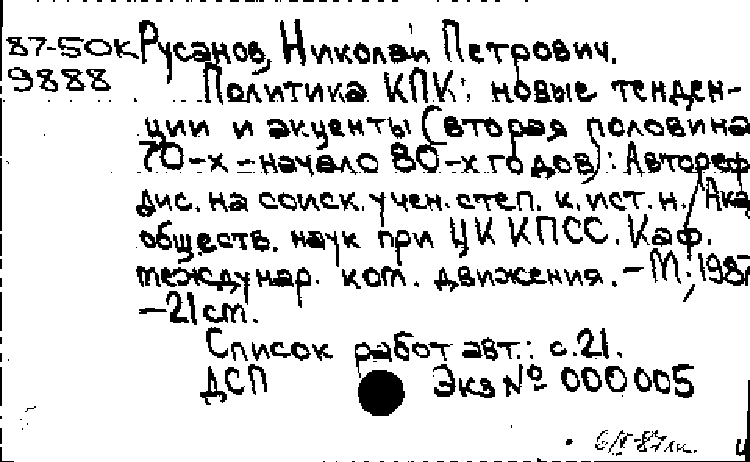 87-50к Русанов, Николай Петрович.
9888 Политика КПК: новые тенден-
ции и акценты (вторая половина
70-х - начало 80-х годов): Автореф
дис. на соиск. учен. степ. к. ист. н. / Ака
обществ. наук при ЦК КПСС. Каф.
междунар. ком. движения. - М., 1987
- 21 см.
Список работ авт.: с. 21.
ДСП Экз № 000005